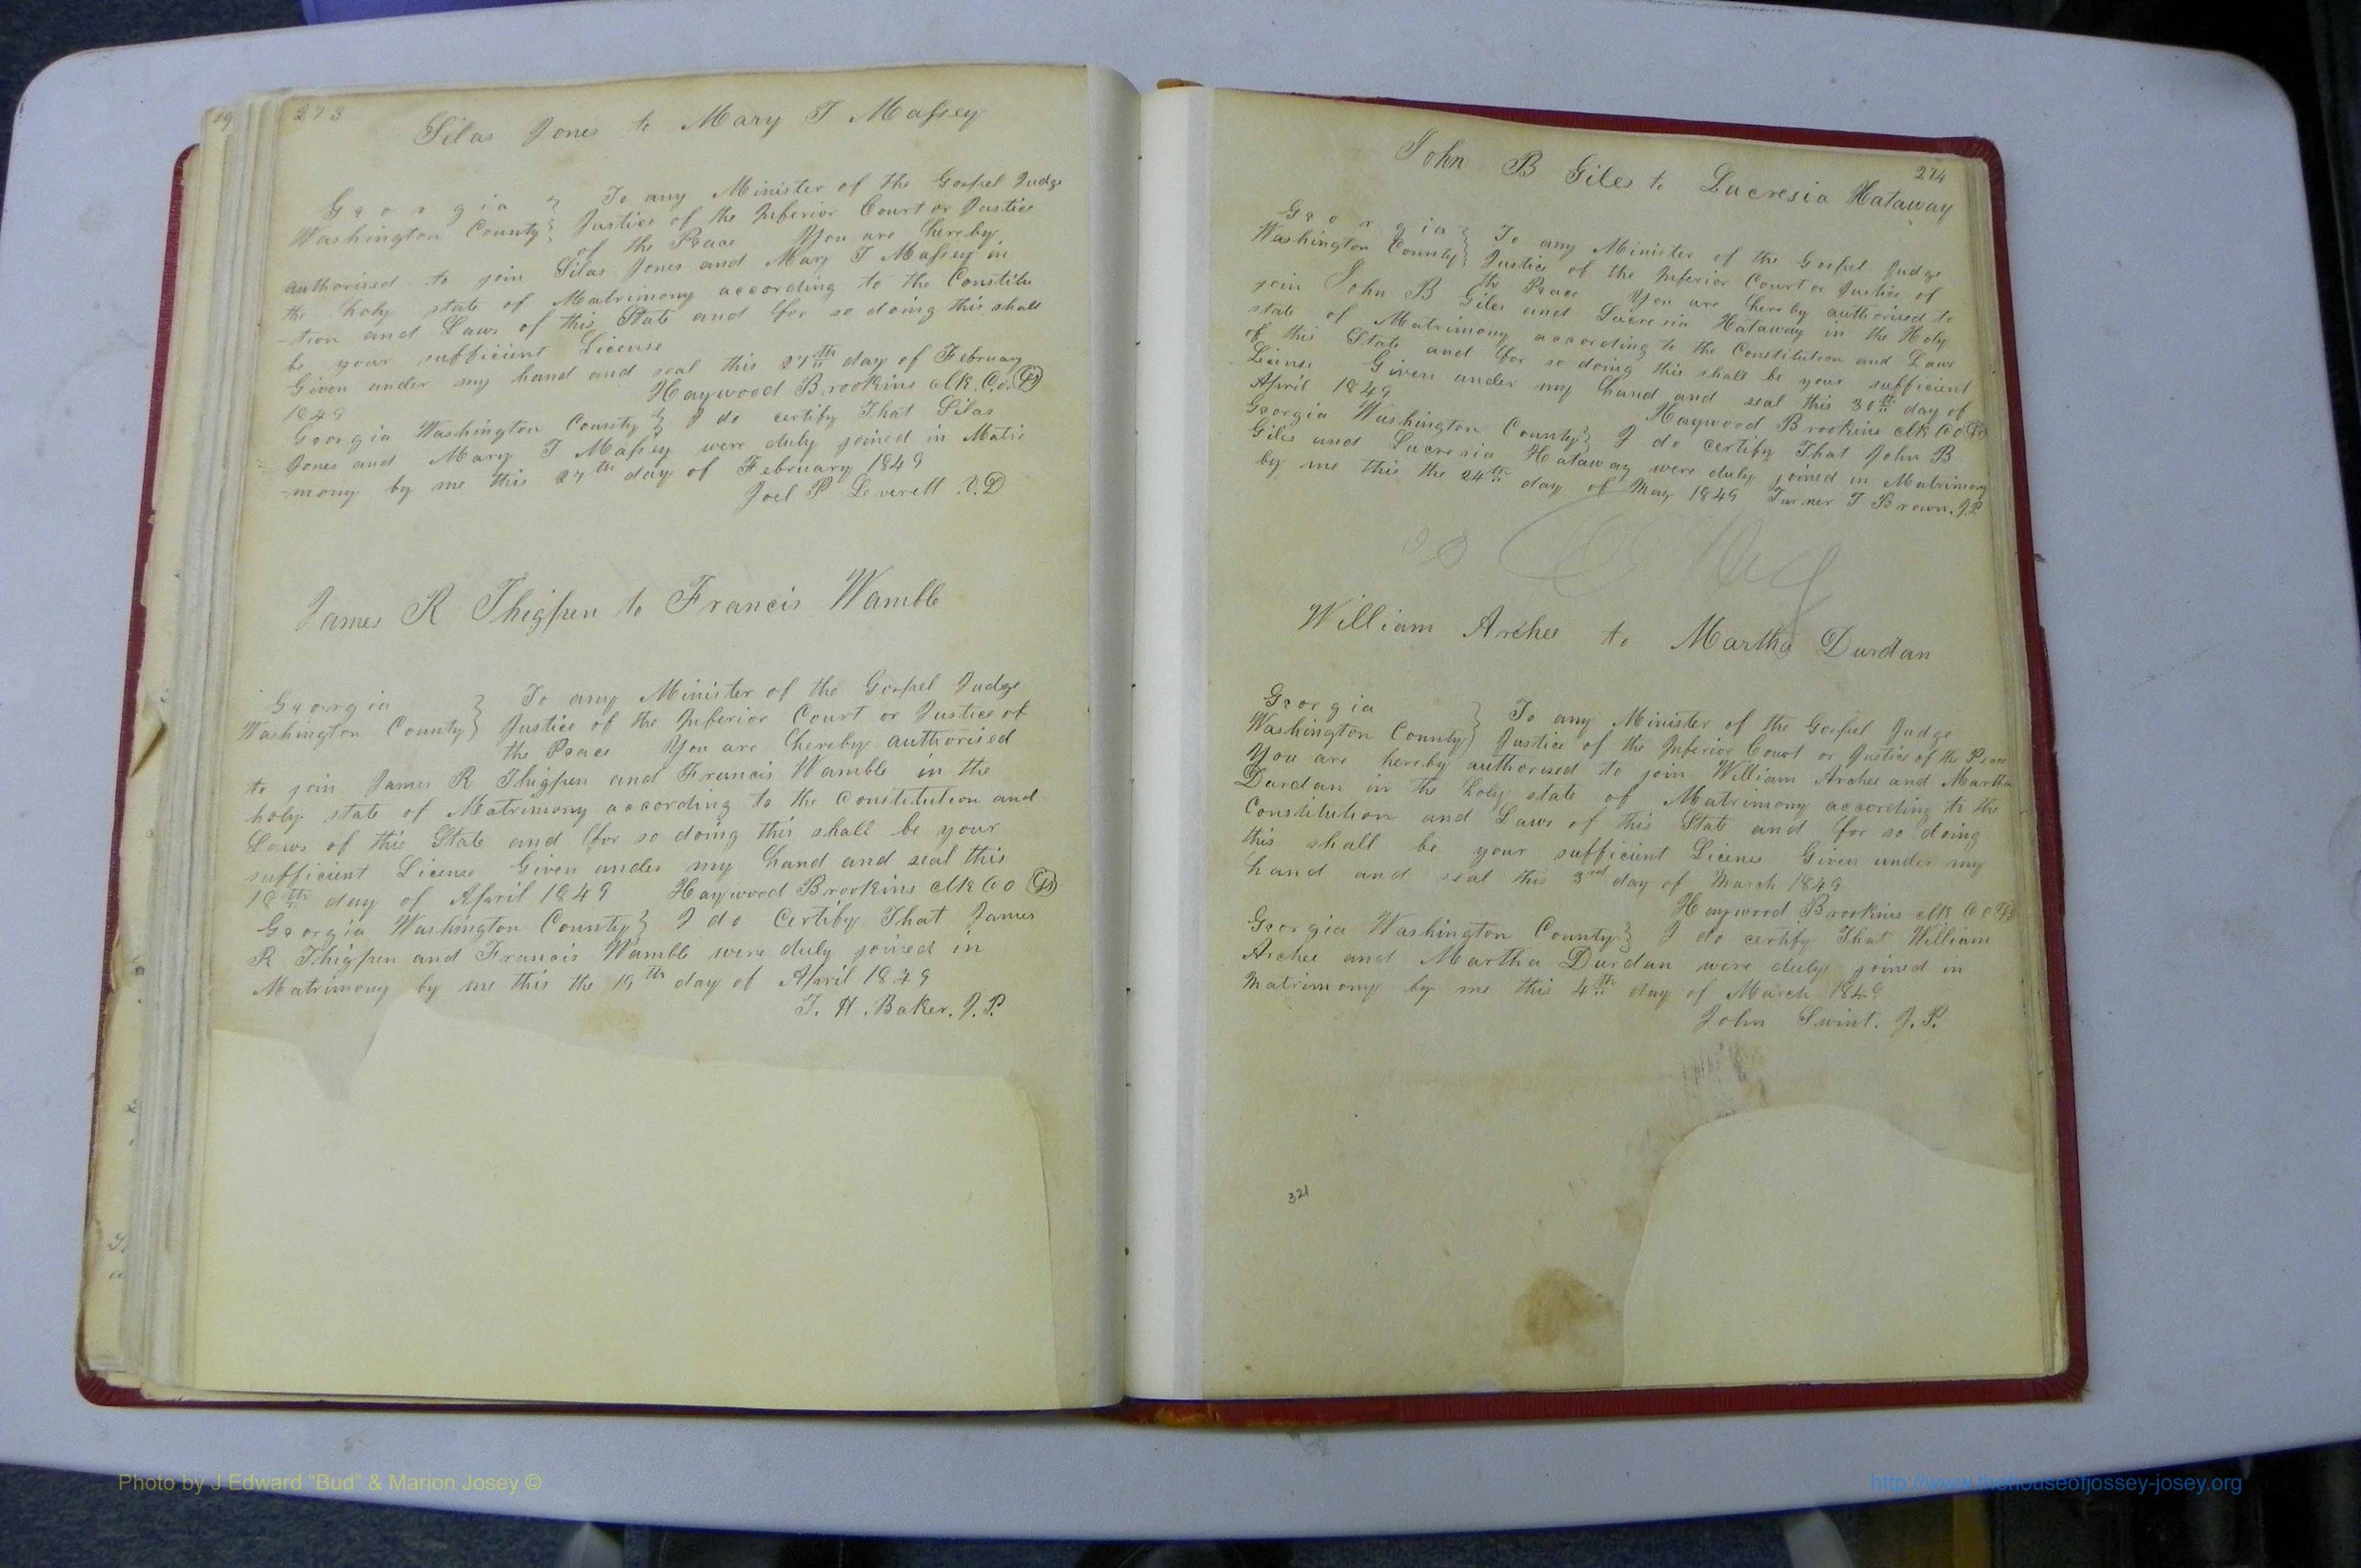 19
273
Silas Jones to Mary T Massey
Georgia } To any Minister of the Gospel Judge
Washington County } Justice of the Inferior Court or Justice
of the Peace You are hereby
authorised to join Silas Jones and Mary T Massey in
the holy state of Matrimony according to the Constitu
-tion and Laws of this State and for so doing this shall
be your sufficient License
Given under my hand and seal this 27th day of February
1849 Haywood Brookins clk. C.O.
Georgia Washington County } I do certify That Silas
Jones and Mary T Massey were duly joined in Matri
-mony by me this 27th day of February 1849
Joel P Leverett
James R Thigpen to Francis Wamble
Georgia } To any Minister of the Gospel Judge
Washington County } Justice of the Inferior Court or Justice of
the Peace You are hereby authorised
to join James R Thigpen and Francis Wamble in the
holy state of Matrimony according to the Constitution and
Laws of this State and for so doing this shall be your
sufficient License Given under my hand and seal this
day of April 1849 Haywood Brookins clk CO
Georgia Washington County } I do Certify That James
R Thigpen and Francis Wamble were duly joined in
Matrimony by me this the 19th day of April 1849
T. H. Baker. J.P.
274
John B Giles to Lucresia Hataway
Georgia } To any Minister of the Gospel Judge
Washington County } Justice of the Inferior Court or Justice of
the Peace You are hereby authorised to
join John B Giles and Lucresia Hataway in the Holy
state of Matrimony according to the Constitution and Laws
of this State and for so doing this shall be your sufficient
License Given under my hand and seal this 30th day of
April 1849 Haywood Brookins clk CO
Georgia Washington County } I do certify That John B
Giles and Lucresia Hataway were duly joined in Matrimony
by me this the 24th day of May 1849 Turner T Brown. J.P.
William Archee to Martha Durdan
Georgia } To any Minister of the Gospel Judge
Washington County } Justice of the Inferior Court or Justice of the Peace
You are hereby authorised to join William Archee and Martha
Durdan in the holy state of Matrimony according to the
Constitution and Laws of this State and for so doing
this shall be your sufficient License Given under my
hand and seal this 3rd day of March 1849
Haywood Brookins clk CO
Georgia Washington County } I do certify That William
Archee and Martha Durdan were duly joined in
Matrimony by me this 4th day of March 1849
John Swint. J.P.
321
Photo by J Edward "Bud" & Marion Josey ©
http://www.thehouseofjossey-josey.org